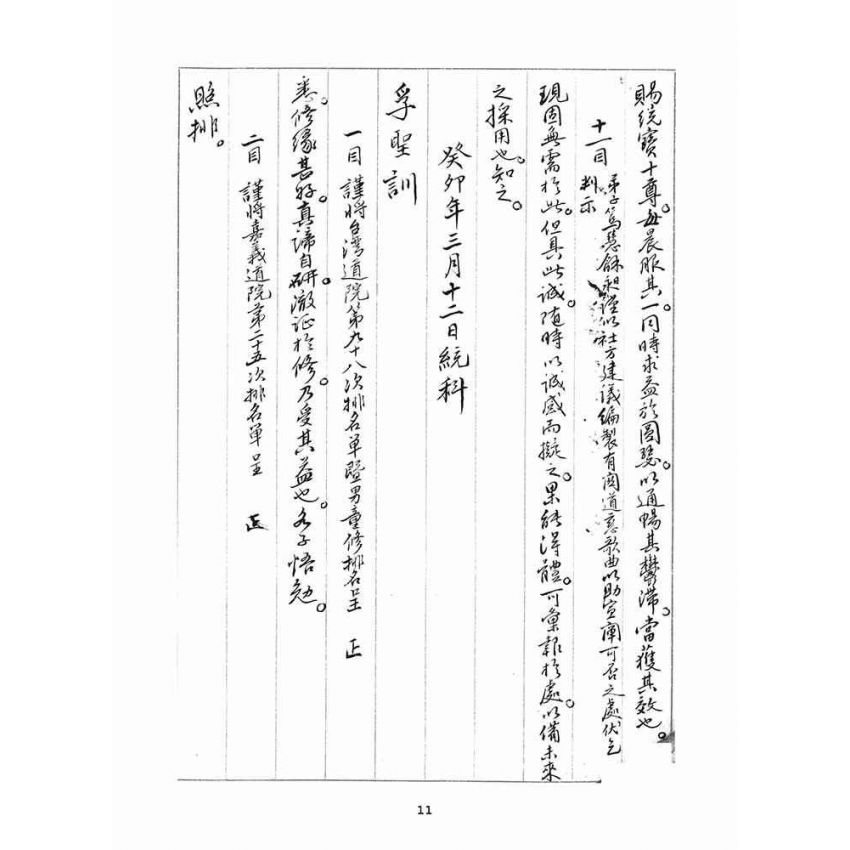 賜統寶十尊。每晨服其一。同時求益於圓瑟。以通暢其鬱滯。當獲其效也。
十一目 弟子篤慧、龢昶謹以社方建議編製有関道慈歌曲以助宣闡可否之處伏乞
判示
現固無需於此。但具此誠。随時以誠感而擬之。果能得體。可彙報於處。以備未來
之採用也。知之。
癸卯年三月十二日統科
孚聖訓
一目 謹將台湾道院第九十八次排名单暨男童修排名呈 正
悉。修緣甚好。真諦自研。澈证於修。乃受其益也。各子悟勉。
二目 謹將嘉義道院第二十五次排名单呈 正
照排。
11